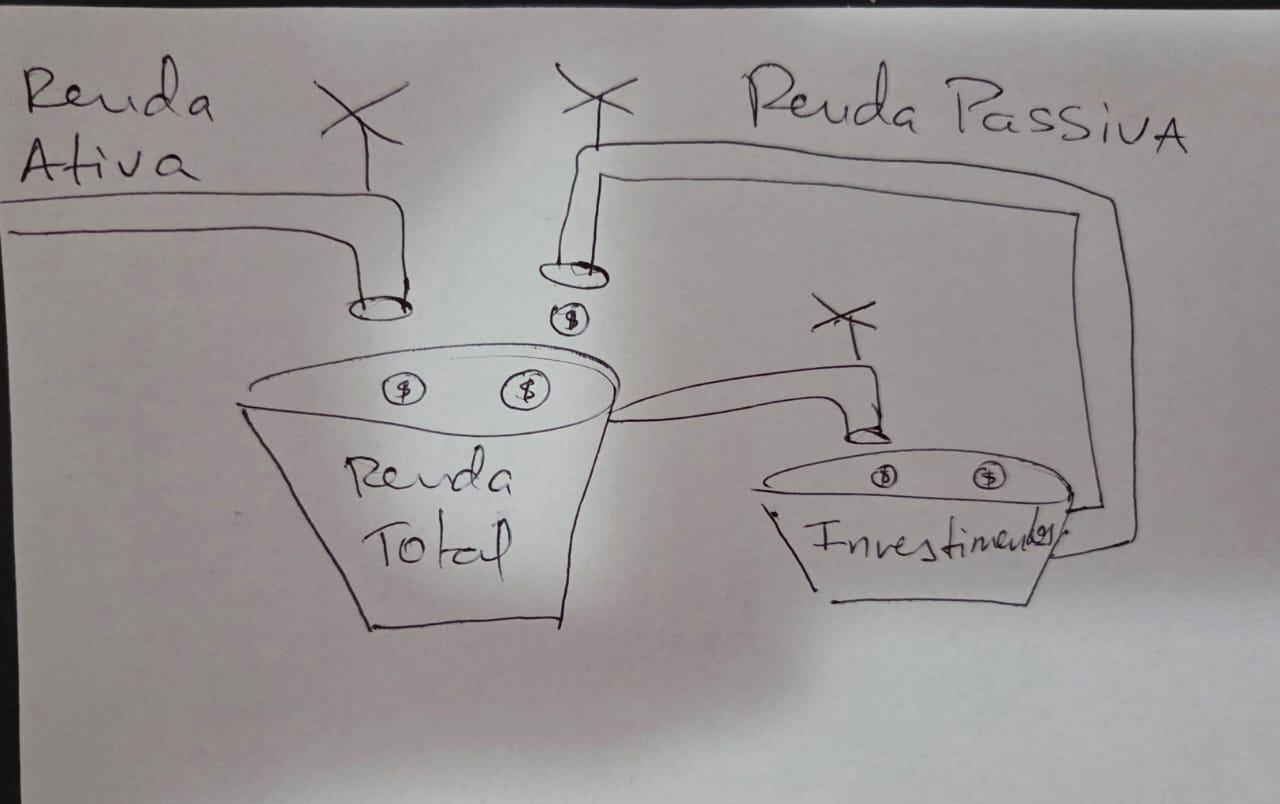 Renda
Ativa
Renda Passiva
$
$
$
Renda
Total
$
$
Investimentos